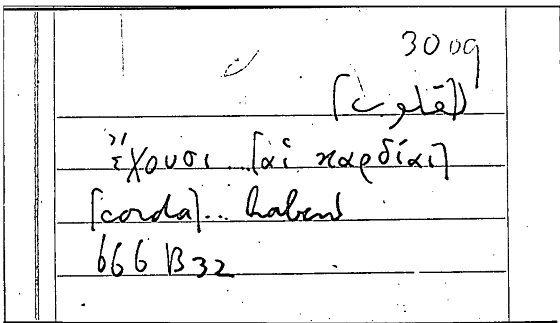 3009
[قلوب]
ἔχουσι...[αἱ καρδίαι]
[corda]... habent
666 B32